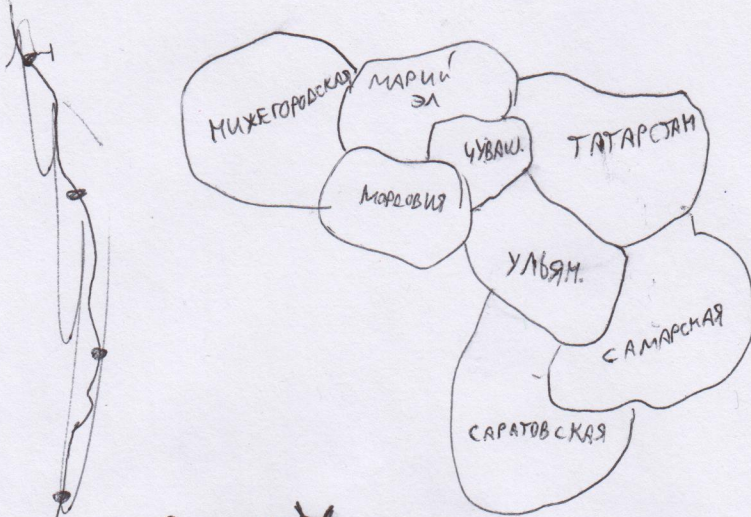 НИЖЕГОРОДСКАЯ
МАРИЙ
ЭЛ
ЧУВАШ.
ТАТАРСТАН
МОРДОВИЯ
УЛЬЯН.
САМАРСКАЯ
САРАТОВСКАЯ